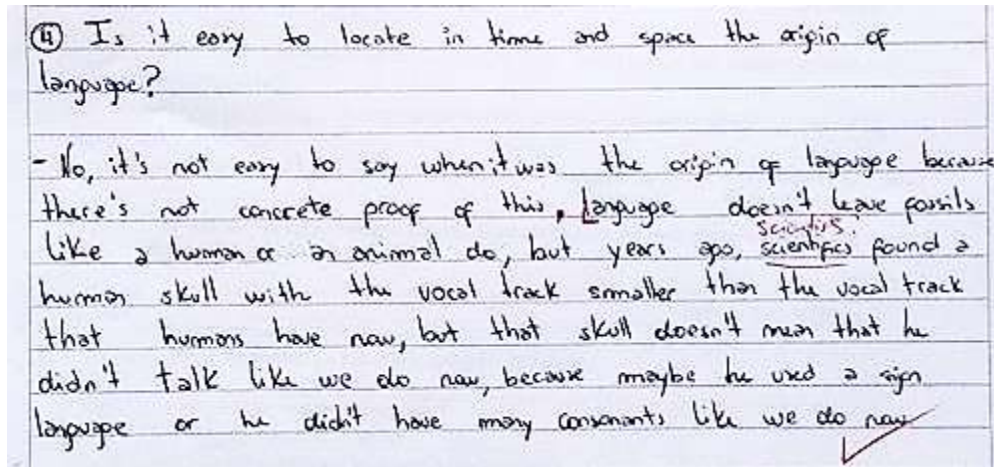 ④ Is it easy to locate in time and space the origin of
language?
- No, it's not easy to say when it was the origin of language because
there's not concrete proof of this. Language doesn't leave fossils
scientists.
like a human or an animal do, but years ago, scientifics found a
human skull with the vocal track smaller than the vocal track
that humans have now, but that skull doesn't mean that he
didn't talk like we do now, because maybe he used a sign
language or he didn't have many consonants like we do now